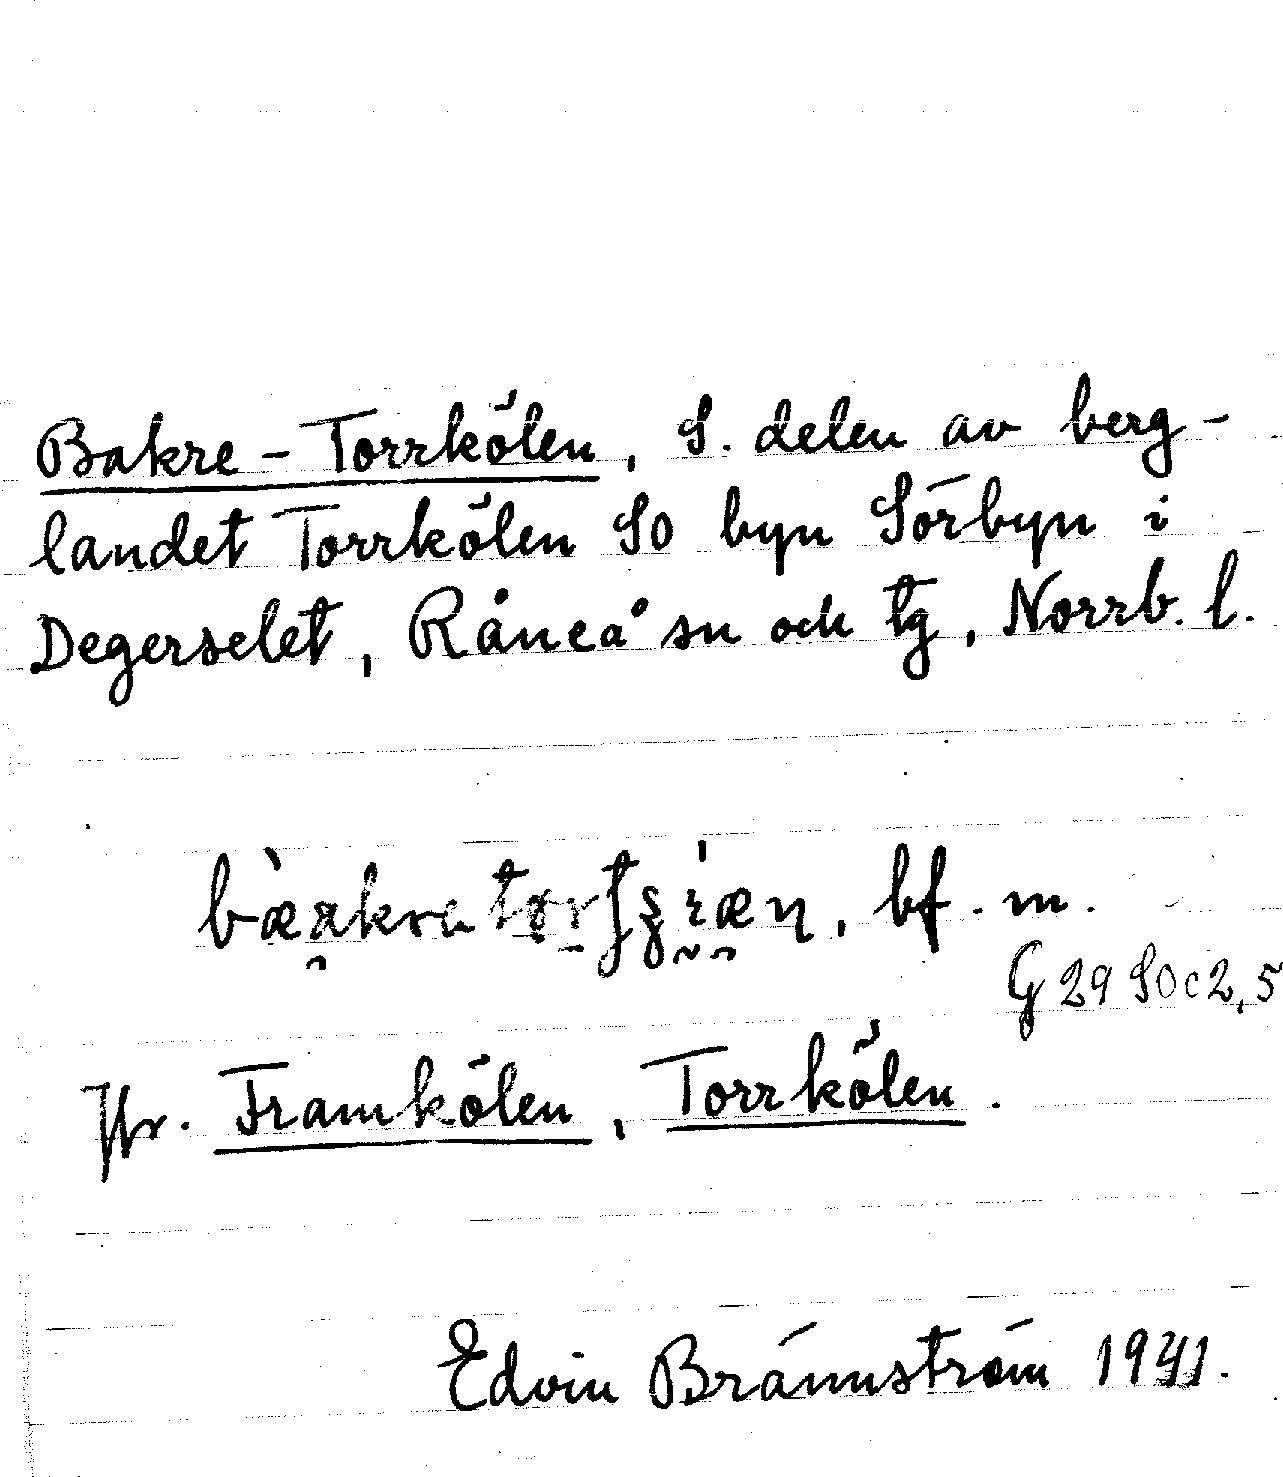 Bakre-Torrkölen, S. delen av berg-
landet Torrkölen SO byn Sörbyn i
Degerselet, Råneå sn och tg, Norrb. l.
bf. m.
G 29 SO c 2,5
Jfr. Framkölen, Torrkölen.
Edvin Brännström 1941.